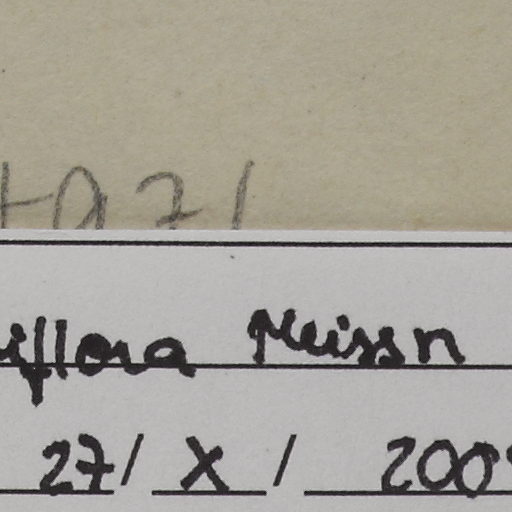 iflora Meissn
27/ X / 200